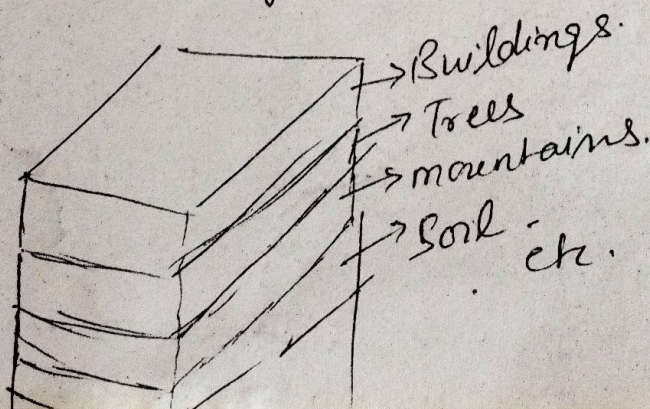 Buildings.
Trees
mountains.
Soil -
etc.